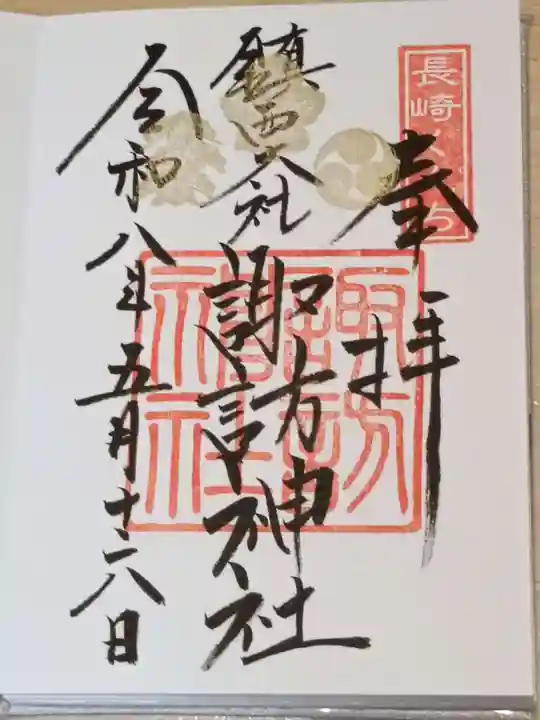 長崎
奉拝
鎮西大社 諏訪神社
諏訪神社
令和八年五月十六日